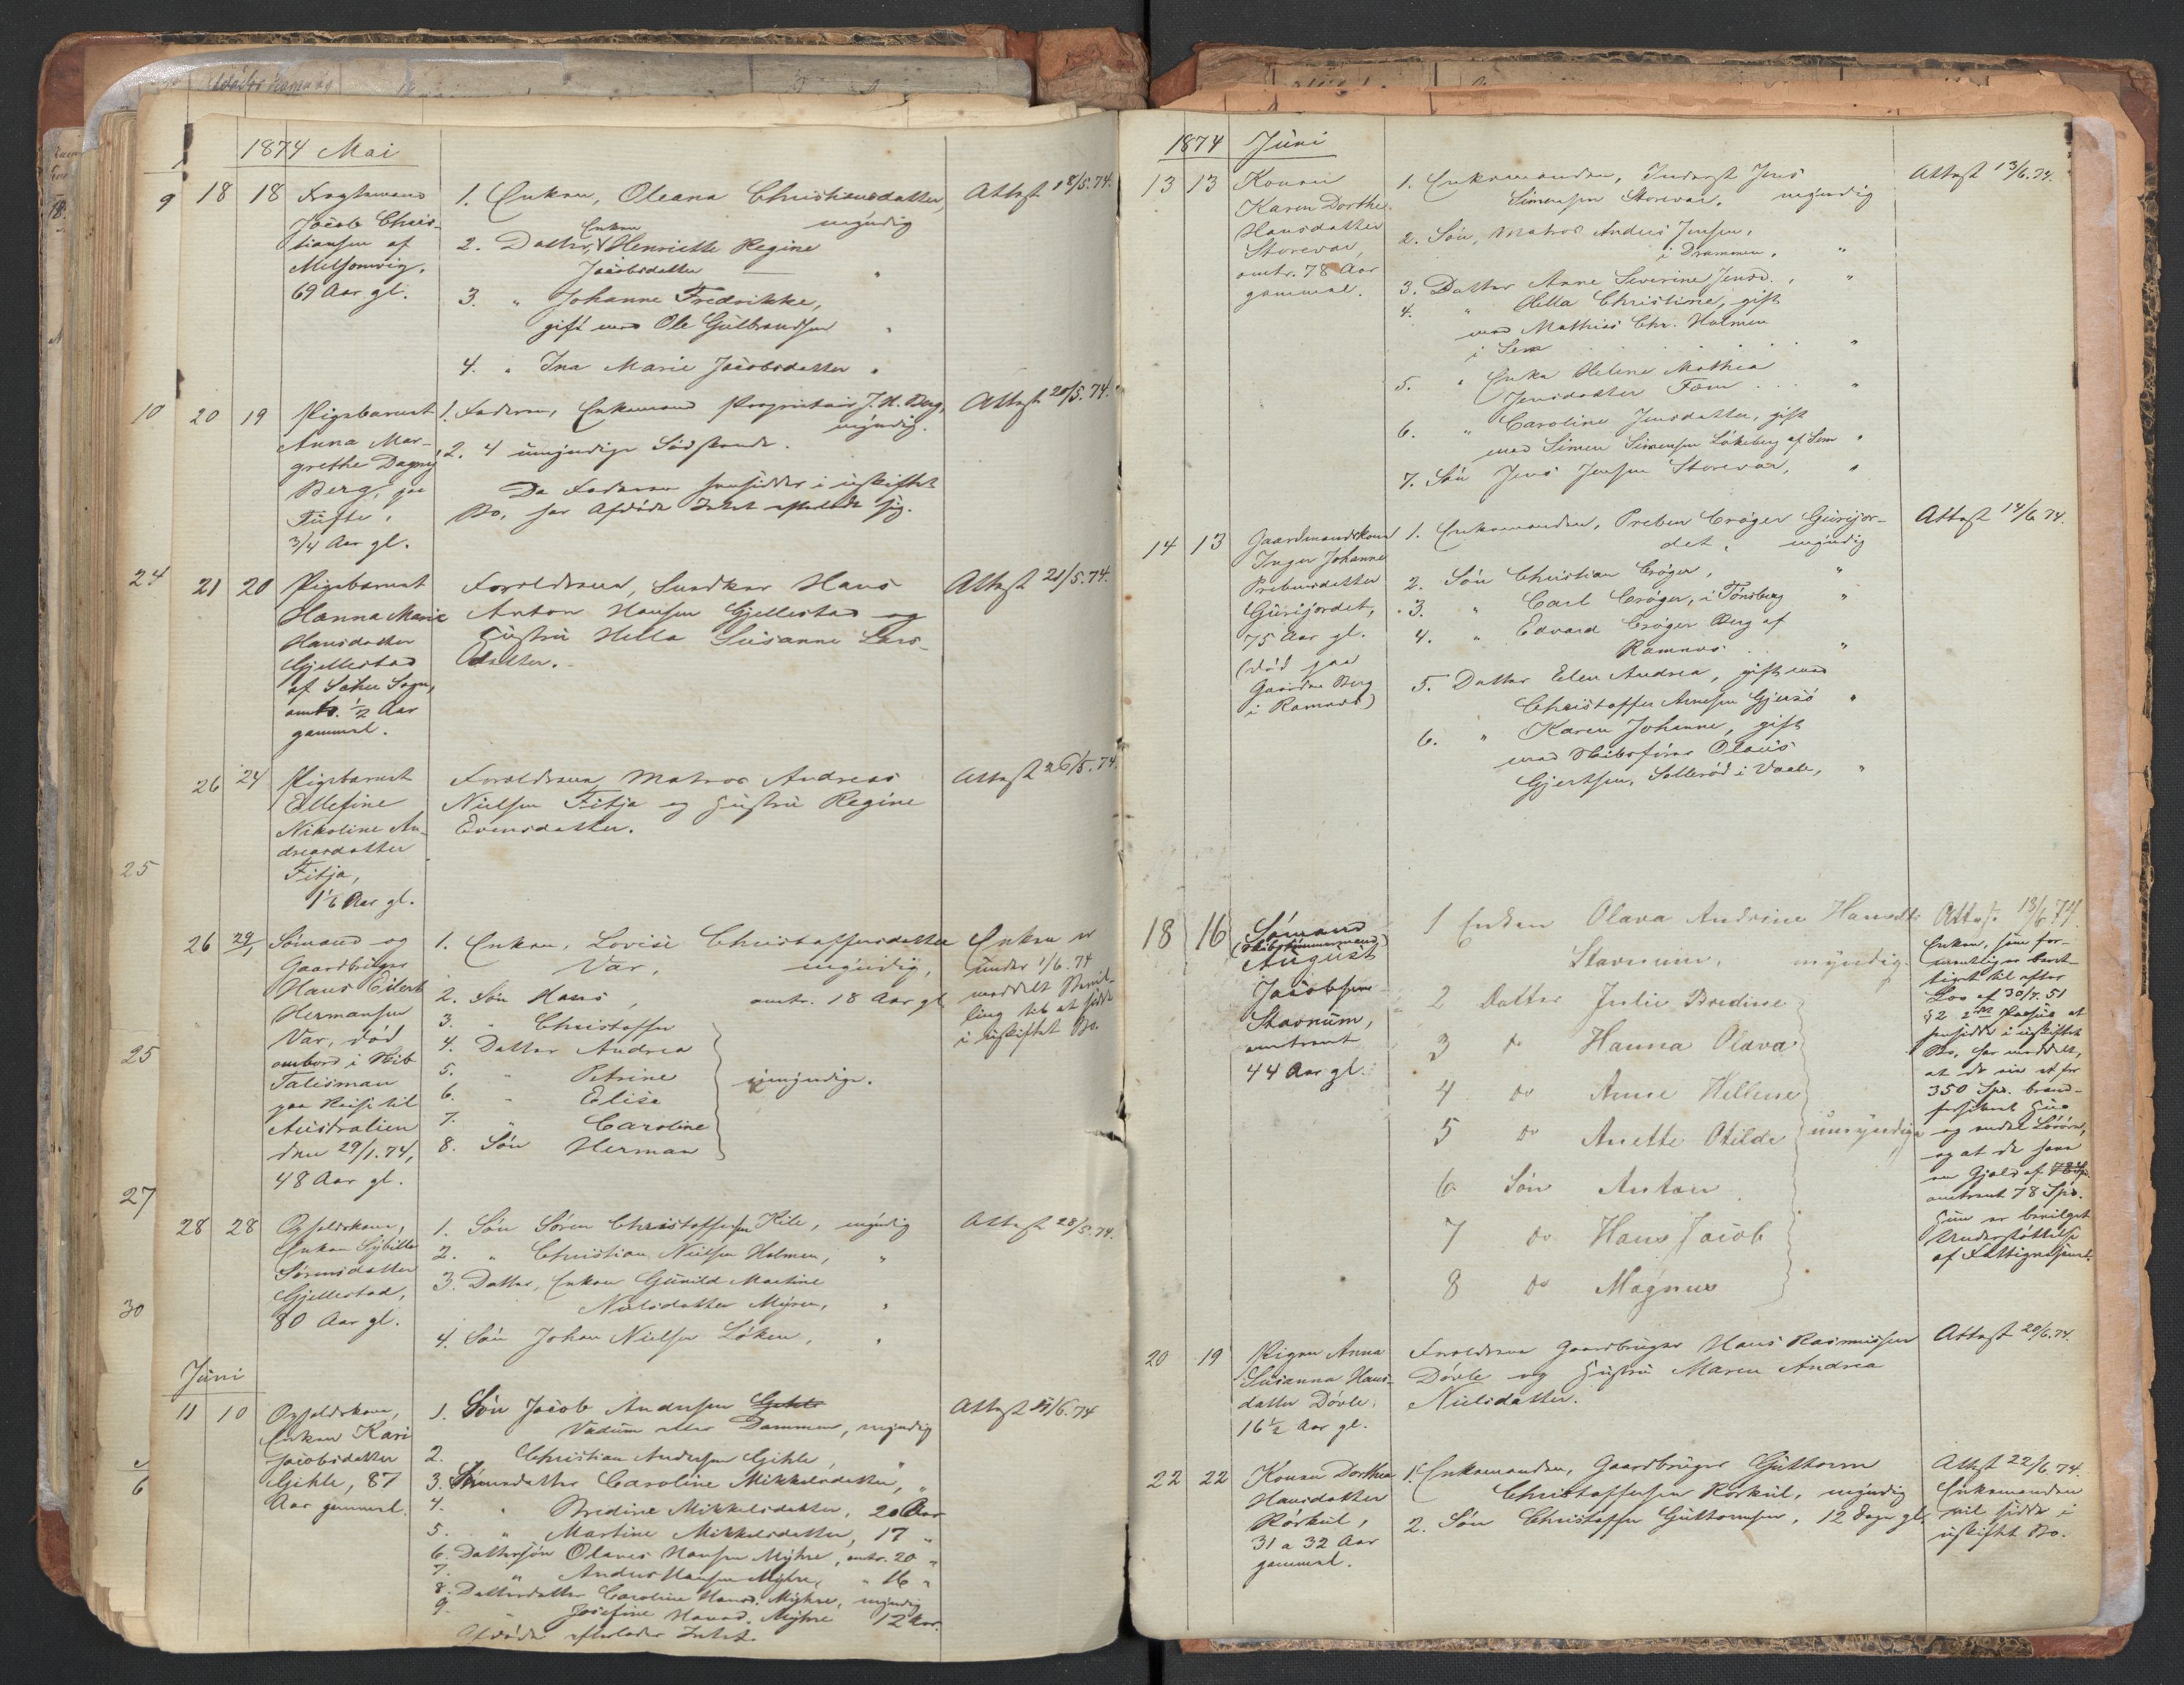 1874 Mai
18 18 Fragtemand
Jacob Chris-
tiansen af
Melsomvig,
69 Aar gl.
1. Enken, Oleana Christiansdatter,
myndig
2. Datter, Enken Henriette Regine
Jacobsdatter "
3. " Johanne Fredrikke,
gift med Ole Gulbrandsen "
4. " Ina Marie Jacobsdatter "
Attest 18/5.74.
20 19 Pigebarnet
Anna Mar-
grethe Dagny
Berg, paa
Tufte,
3/4 Aar gl.
1. Faderen, Enkemand Proprietair J. H. Berg,
myndig.
2. 4 umyndige Sødskende.
Da Faderen hensidder i uskiftet
Bo, har Afdøde Intet efterladt sig.
Attest 20/5.74.
21 20 Pigebarnet
Hanna Marie
Hansdatter
Gjellestad
af Sæhee Sogn,
omtr. 1/2 Aar
gammel.
Forældrene, Snedker Hans
Anton Hansen Gjellestad og
Hustru Hella Susanne Lars-
datter.
Attest 21/5.74.
26 24 Pigebarnet
Ellefine
Nikoline An-
dreasdatter
Fitja,
1 1/6 Aar gl.
Forældrene Matros Andreas
Nielsen Fitja og Hustru Regine
Evensdatter.
Attest 26/5.74.
26 29/1 Sømand og
Gaardbruger
Hans Eilert
Hermansen
Var, død
ombord i Skib
Talisman
paa Reise til
Australien
den 29/1.74,
48 Aar gl.
1. Enken, Lovise Christoffersdatter
Var, myndig,
2. Søn Hans, omtr. 18 Aar gl.
3. " Christoffer
4. Datter Andrea
5. " Petrine
6. " Elise
7. " Caroline
8. Søn Herman
umyndige.
Enken er
under 1/6.74
meddelt Bevil-
ling til at sidde
i uskiftet Bo.
28 28 Opholdskone,
Enken Sybille
Sørensdatter
Gjellestad,
80 Aar gl.
1. Søn Søren Christoffersen Kile, myndig
2. " Christian Nielsen Holmen, "
3. Datter, Enken Gunild Martine
Nielsdatter Myren, "
4. Søn Johan Nielsen Løken, "
Attest 28/5.74.
Juni
11 10 Opholdskone,
Enken Kari
Jacobsdatter
Gihle, 87
Aar gammel.
1. Søn Jacob Andersen Gihle
Vadum eller Dammen, myndig
2. Christian Andersen Gihle, "
3. Sønnedatter Caroline Mikkelsdatter, "
4. " Bredine Mikkelsdatter, 20 Aar
5. " Martine Mikkelsdatter, 17 "
6. Dattersøn Olaves Hansen Myhre, omtr. 20 "
7. " Anders Hansen Myhre, " 16 "
8. Datterdatter Caroline Hansd. Myhre, myndig
9. Josefine Hansd. Myhre 12 Aar.
Afdøde efterlader Intet.
Attest 11/6.74
9
10
24
25
25
27
30
6
1874 Juni
13 13 Konen
Karen Dorthe
Hansdatter
Storevar,
omtr. 78 Aar
gammel.
1. Enkemanden, Inderst Jens
Simensen Storevar, myndig
2. Søn, Matros Anders Jensen,
i Drammen, "
3. Datter Anne Severine Jensd., "
4. " Hella Christine, gift
med Mathias Chr. Holmen
i Sem "
5. " Enke Helene Mathea
Jensdatter Fæen "
6. " Caroline Jensdatter, gift
med Simen Simensen Løkeberg af Sem "
7. Søn Jens Jensen Storevar, "
Attest 13/6.74.
14 13 Gaardmandskone
Inger Johanne
Prebensdatter
Gurijordet,
75 Aar gl.
(død paa
Gaarden Berg
i Ramnes)
1. Enkemanden, Preben Crøger Gurijor-
det, myndig
2. Søn Christian Crøger, "
3. " Carl Crøger, i Tønsberg "
4. " Edvard Crøger Berg af
Ramnes "
5. Datter Elen Andrea, gift med
Christoffer Arnesen Gjersø "
6. " Karen Johanne, gift
med Skibsfører Olaus
Gjertsen, Sollerød i Vaale, "
Attest 14/6.74.
18 16 Sømand
(Skibstømmermand)
August
Jacobsen
Stavnum,
omtrent
44 Aar gl.
1 Enken Olava Andrine Hansdtr
Stavnum, myndig.
2 Datter Julie Bredine
3 do Hanna Olava
4 do Anne Hellene
5 do Anette Otilde
6 Søn Anton
7 do Hans Jacob
8 do Magnus
umyndige
Attest 18/6.74.
Enken, som for-
mentlig er beret-
tiget til efter
Lov af 30/7.51
§ 2 2det Passus at
hensidde i uskiftet
Bo, har meddelt,
at de eie et for
350 Spd. brand-
forsikret Huus
og endel Løsøre,
og at de have
en Gjæld af
omtrent 78 Spd.
Hun er bevilget
Understøttelse
af Fattigvæsenet.
20 19 Pigen Anna
Susanna Hans-
datter Døvle,
16 1/2 Aar gl.
Forældrene Gaardbruger Hans Rasmussen
Døvle og Hustru Maren Andrea
Nielsdatter.
Attest 20/6.74.
22 22 Konen Dorthea
Hansdatter
Rørkul,
31 a 32 Aar
gammel.
1. Enkemanden, Gaardbruger Guttorm
Christoffersen Rørkul, myndig
2. Søn Christoffer Guttormsen, 12 Dage gl.
Attest 22/6.74.
Enkemanden
vil sidde i
uskiftet Bo.